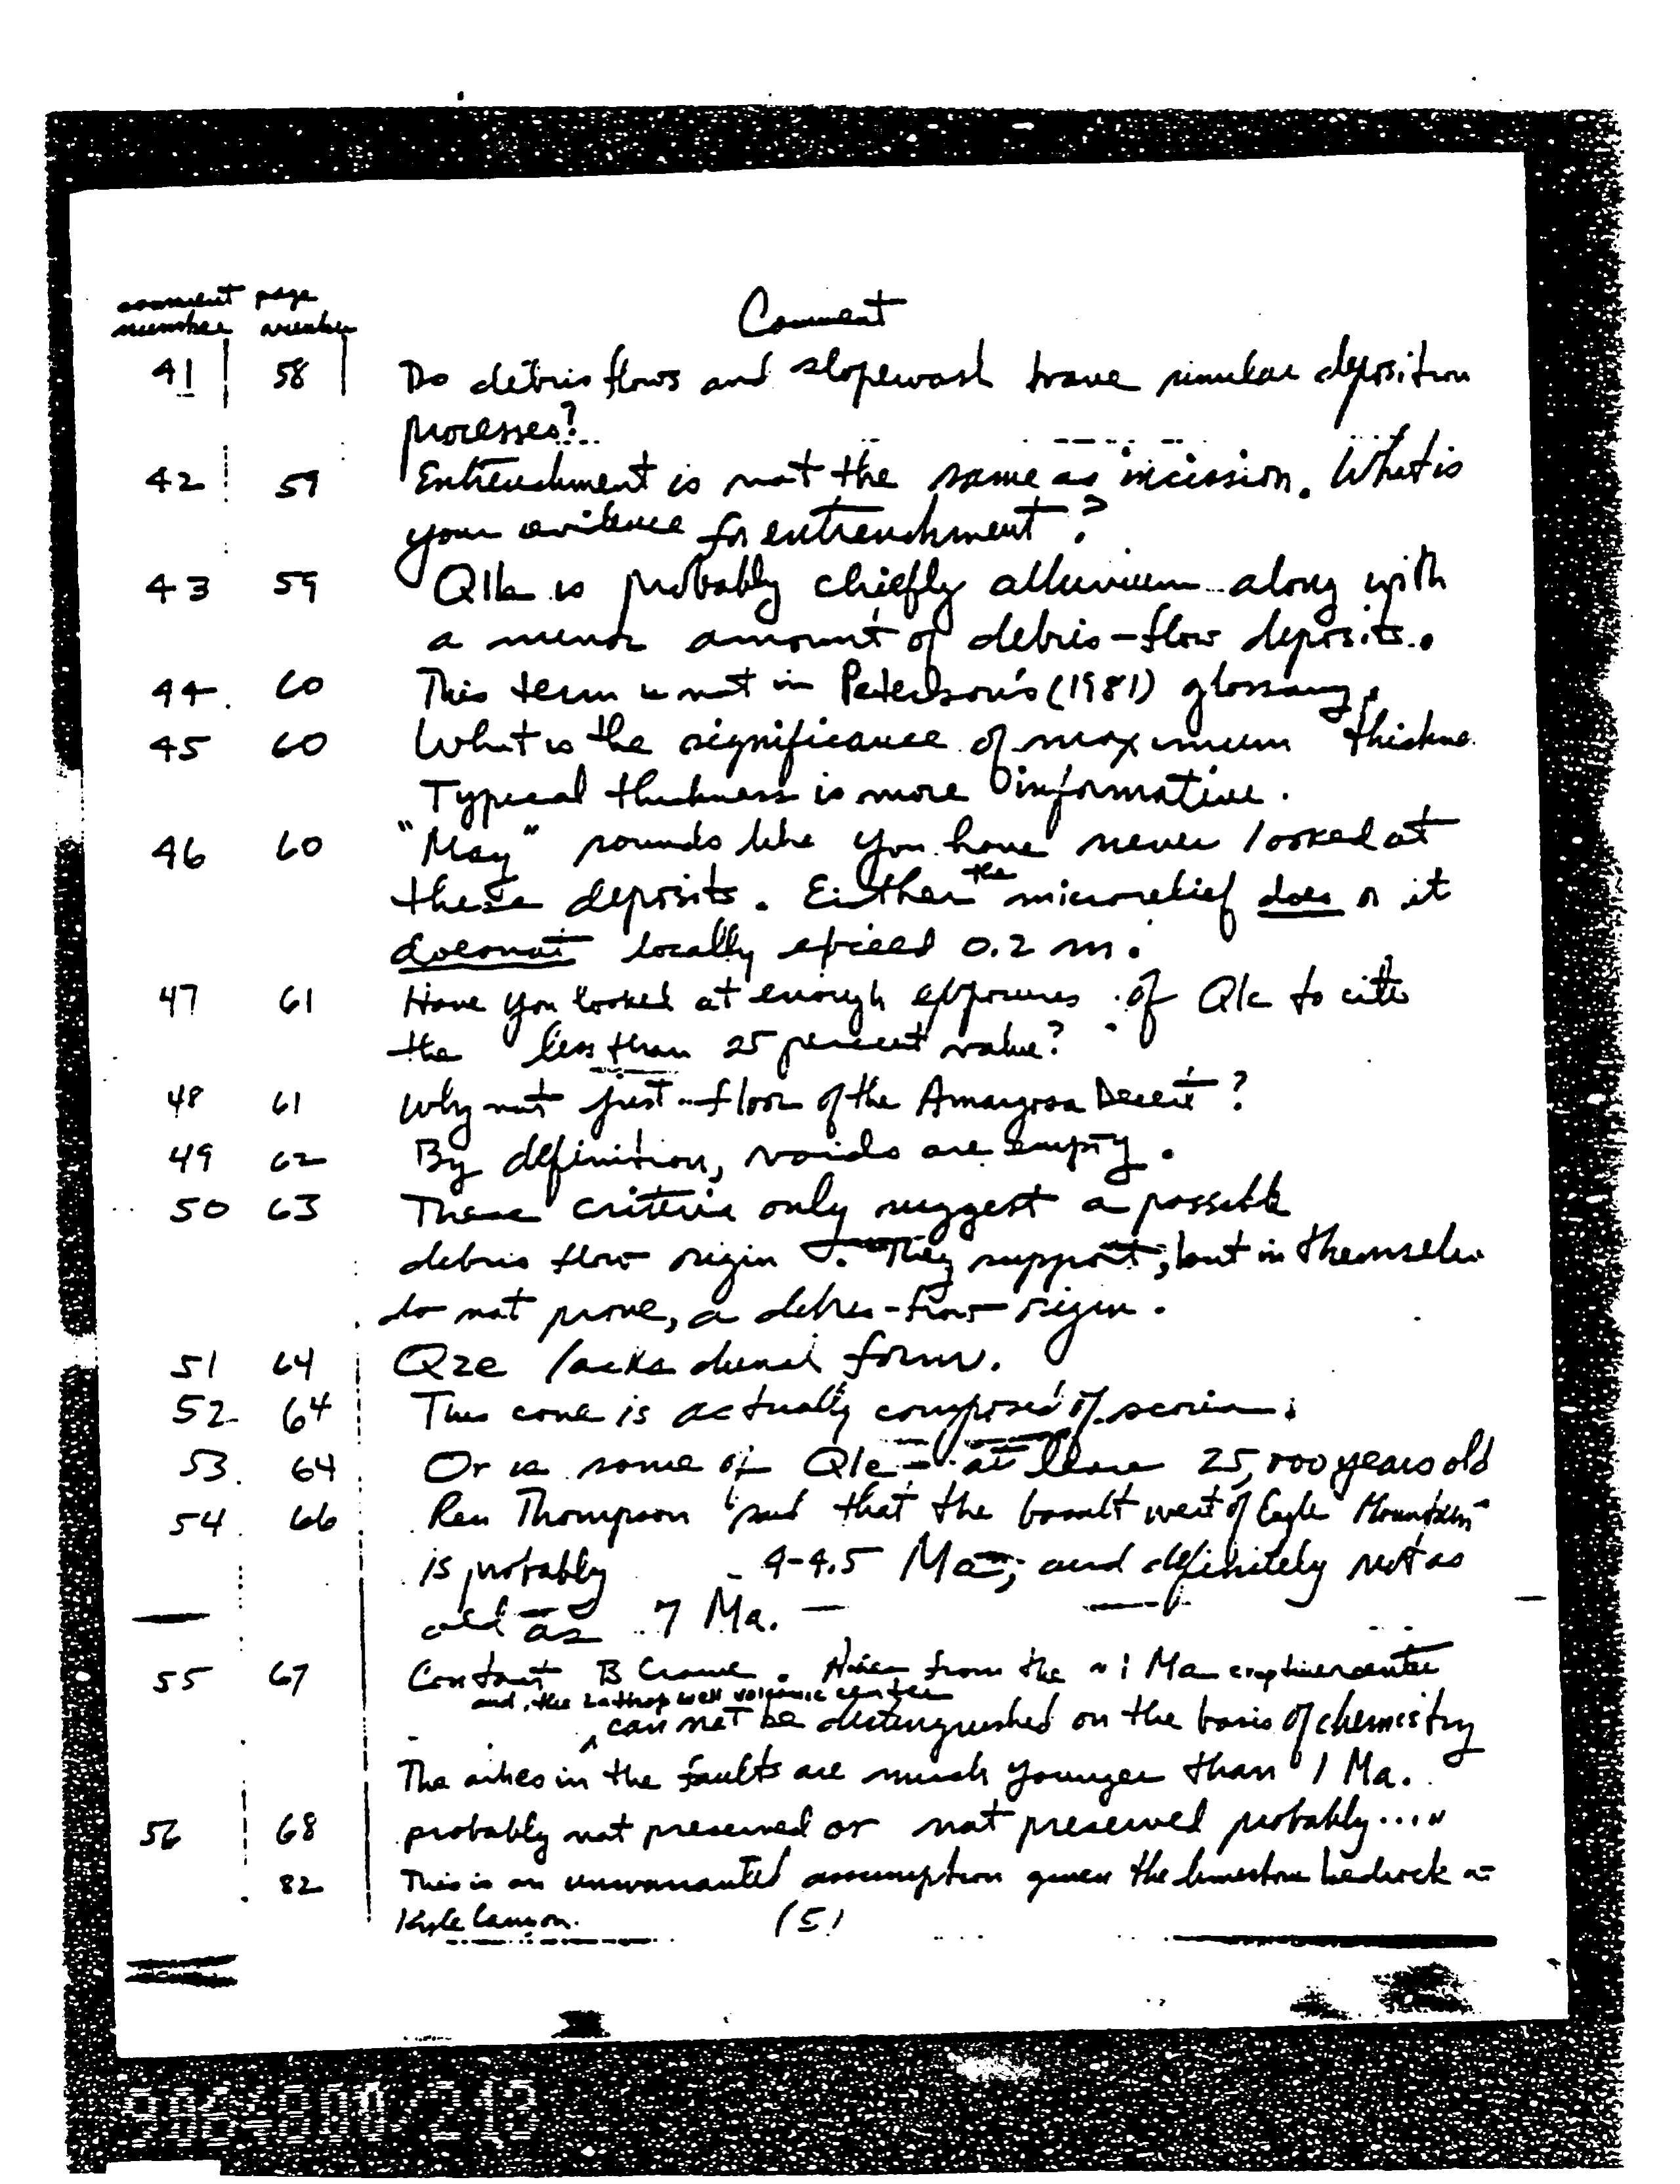 comment page
number number
Comment
41 58 Do debris flows and slopewash have similar deposition
processes?
42 59 Entrenchment is not the same as incission. What is
your evidence for entrenchment?
43 59 Q1b is probably chiefly alluvium along with
a minor amount of debris-flow deposits.
44. 60 This term is not in Peterson's (1981) glossary.
45 60 What is the significance of maximum
Typical thickness is more informative.
46 60 "May" sounds like you have never looked at
these deposits. Either the microrelief does or it
doesnot locally exceed 0.2 m.
47 61 Have you looked at enough exposures of Q1c to cite
the less than 25 percent value?
48 61 Why not just floor of the Amargosa Desert?
49 62 By definition, voids are empty.
50 63 These criteria only suggest a possible
debris flow origin. They support, but in themselves
do not prove, a debris-flow origin.
51 64 Q2e lacks dunal form.
52 64 This cone is actually composed of scoria.
53. 64 Or is some of Q1e at least 25,000 years old
54. 66 Ren Thompson said that the basalt west of Eagle Mountain
is probably 4-4.5 Ma; and definitely not as
old as 7 Ma.
55 67 Contact B Crowe. from the ~1 Ma
and the Lathrop well volcanic center
can not be distinguished on the basis of chemistry
The ashes in the faults are much younger than 1 Ma.
56 68 probably not preserved or not preserved probably...."
82 This is an unwarranted assumption given the limestone bedrock at
Kyle Canyon.
(5)